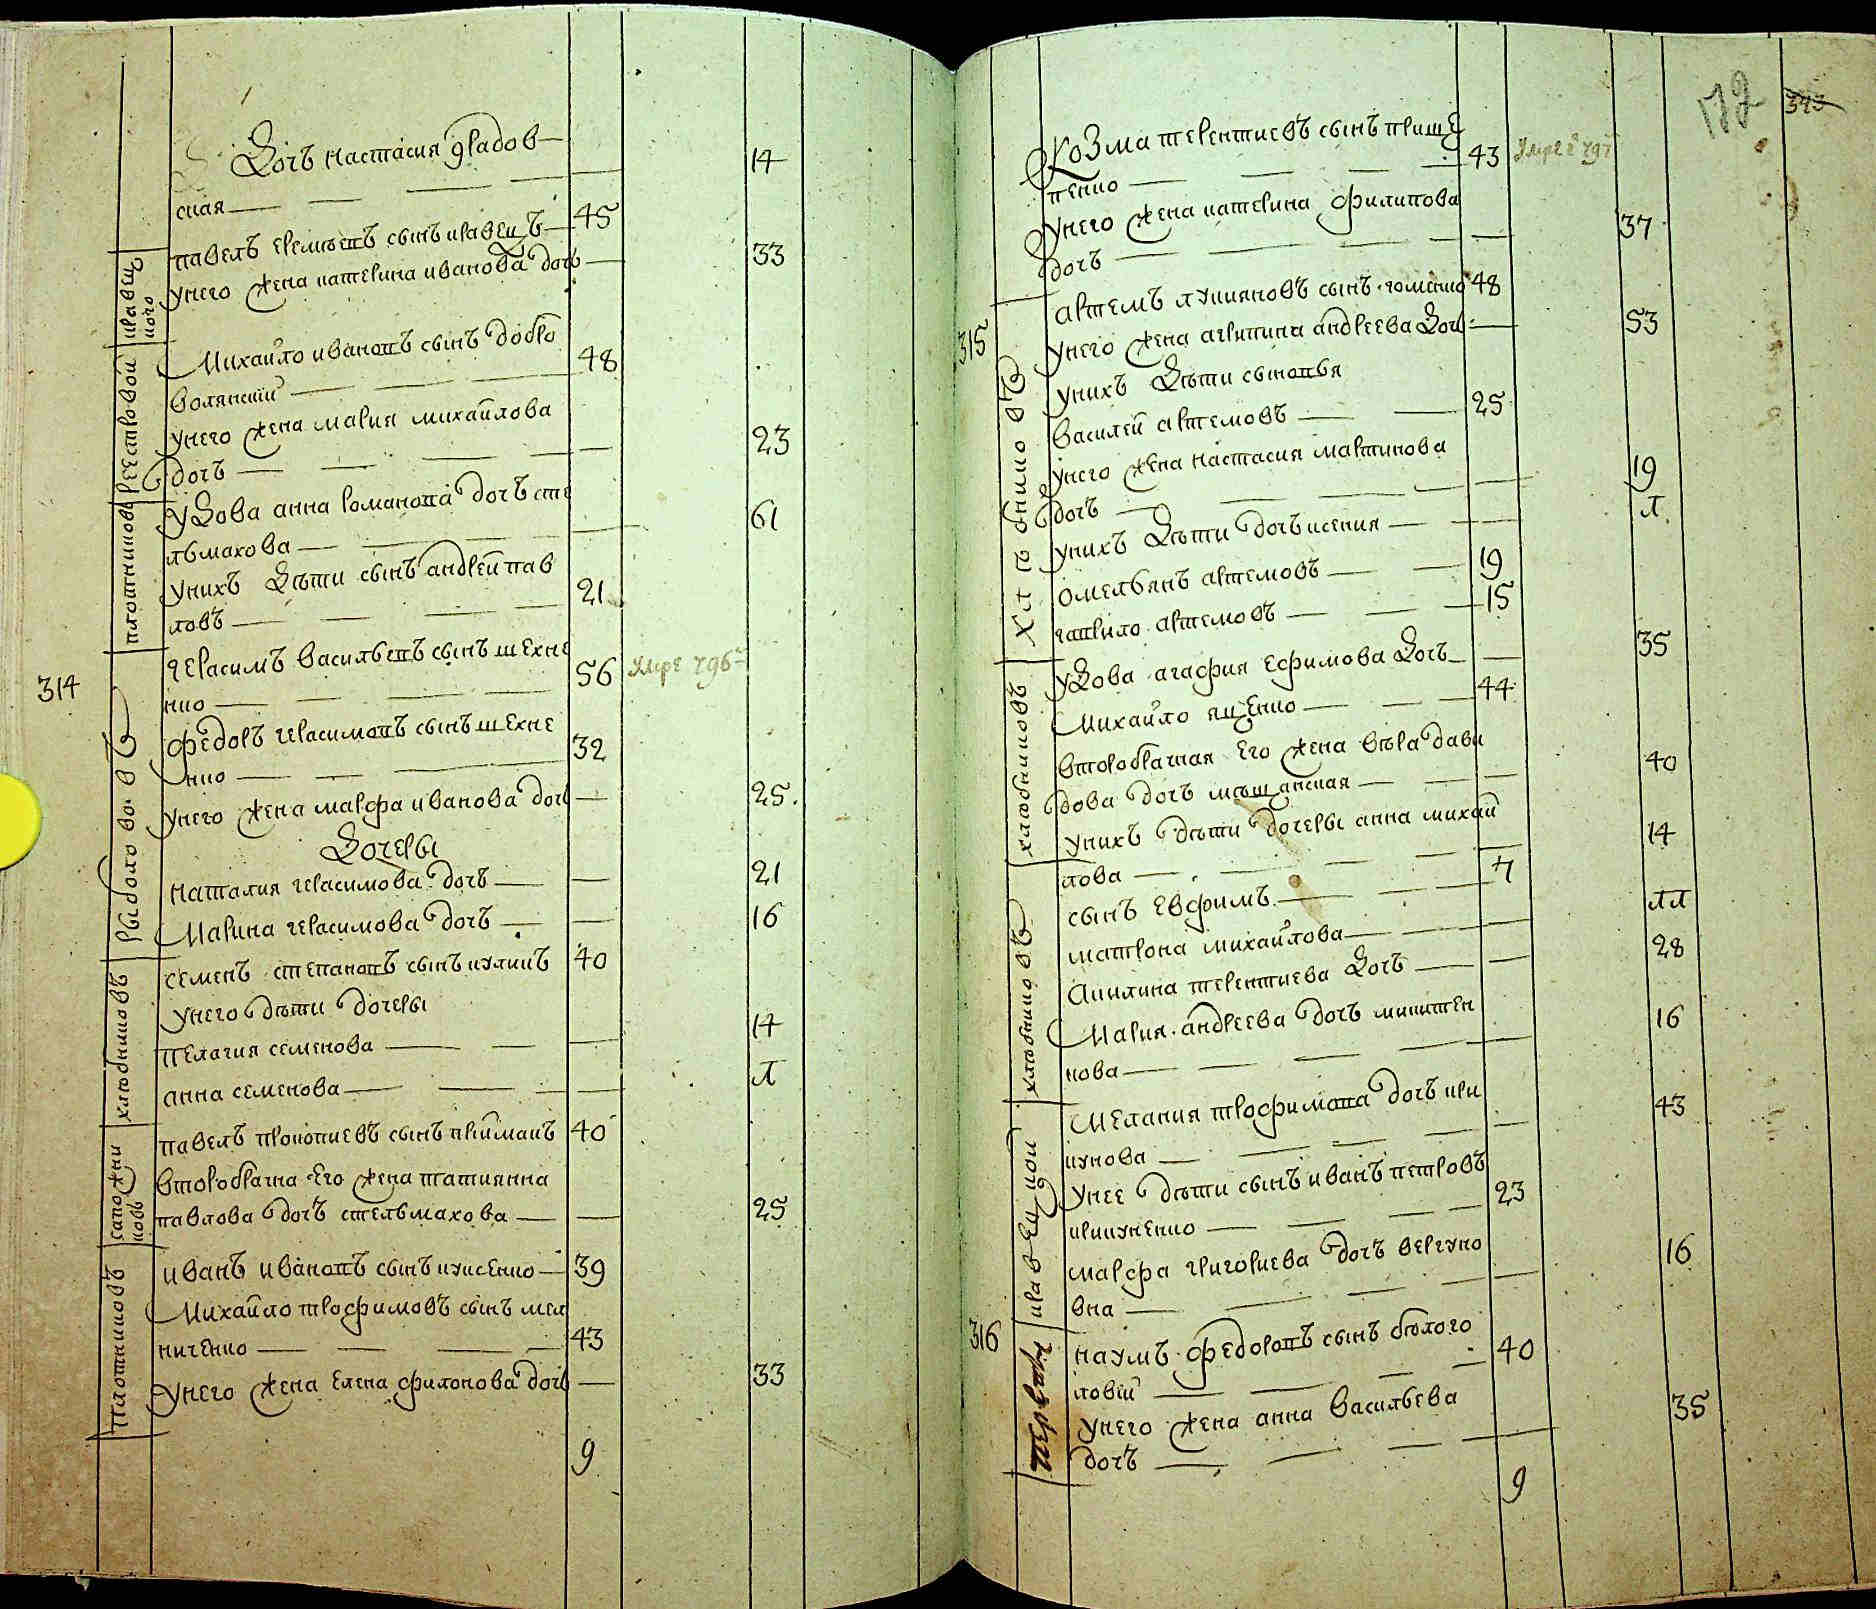 дочъ настасия
ская 14
павелъ еремѣевъ сынъ кравецъ 45
унего жена катерина иванова дочъ 33
кравец
кого
Михайло ивановъ сынъ добро
волянский 48
унего жена мария михайлова
дочъ 23
реестровой
удова анна романова дочъ сте
льмахова 61
унихъ дѣти сынъ андрей пав
ловъ 21
плотниковъ
314
герасимъ васильевъ сынъ шехне
нко 56 умре 796г
федоръ герасимовъ сынъ шехне
нко 32
унего жена марфа иванова дочъ 25
дочеры
наталия герасимова дочъ 21
Марина герасимова дочъ 16
семенъ степановъ сынъ куликъ 40
унего дѣти дочеры
пелагия семенова 14
анна семенова л
хлѣбниковъ
павелъ прокопиевъ сынъ приймакъ 40
второбрачна его жена татиянна
павлова дочъ стельмахова 25
сапожни
ковъ
иванъ ивановъ сынъ куксенко 39
Михайло трофимовъ сынъ мел
ниченко 43
унего жена елена филонова дочъ 33
плотниковъ
9
172 343
Козма терентиевъ сынъ прище
пенко 43 умре 797
унего жена катерина филипова
дочъ 37
315
артемъ лукияновъ сынъ гоменко 48
унего жена агрипина андреева дочъ 53
унихъ дѣти сыновья
василей артемовъ 25
унего жена настасия мартинова
дочъ 19
унихъ дѣти дочъ ксения л
омельянъ артемовъ 19
гаврило артемовъ 15
удова агафия ефимова дочъ 35
Михайло яценко 44
второбрачная его жена вѣра дави
дова дочъ мѣщанская 40
унихъ дѣти дочеры анна михай
лова 14
сынъ евфимъ 7
матрона михайлова лл
хлѣбниковъ
Акилина терентиева дочъ 28
Мария андреева дочъ микитен
кова 16
хлѣбниковъ
Мелания трофимова дочъ кри
кунова 43
унее дѣти сынъ иванъ петровъ
крикуненко 23
марфа григориева дочъ вергуно
вна 16
316
наумъ федоровъ сынъ бѣлого
ловий 40
унего жена анна васильева
дочъ 35
9